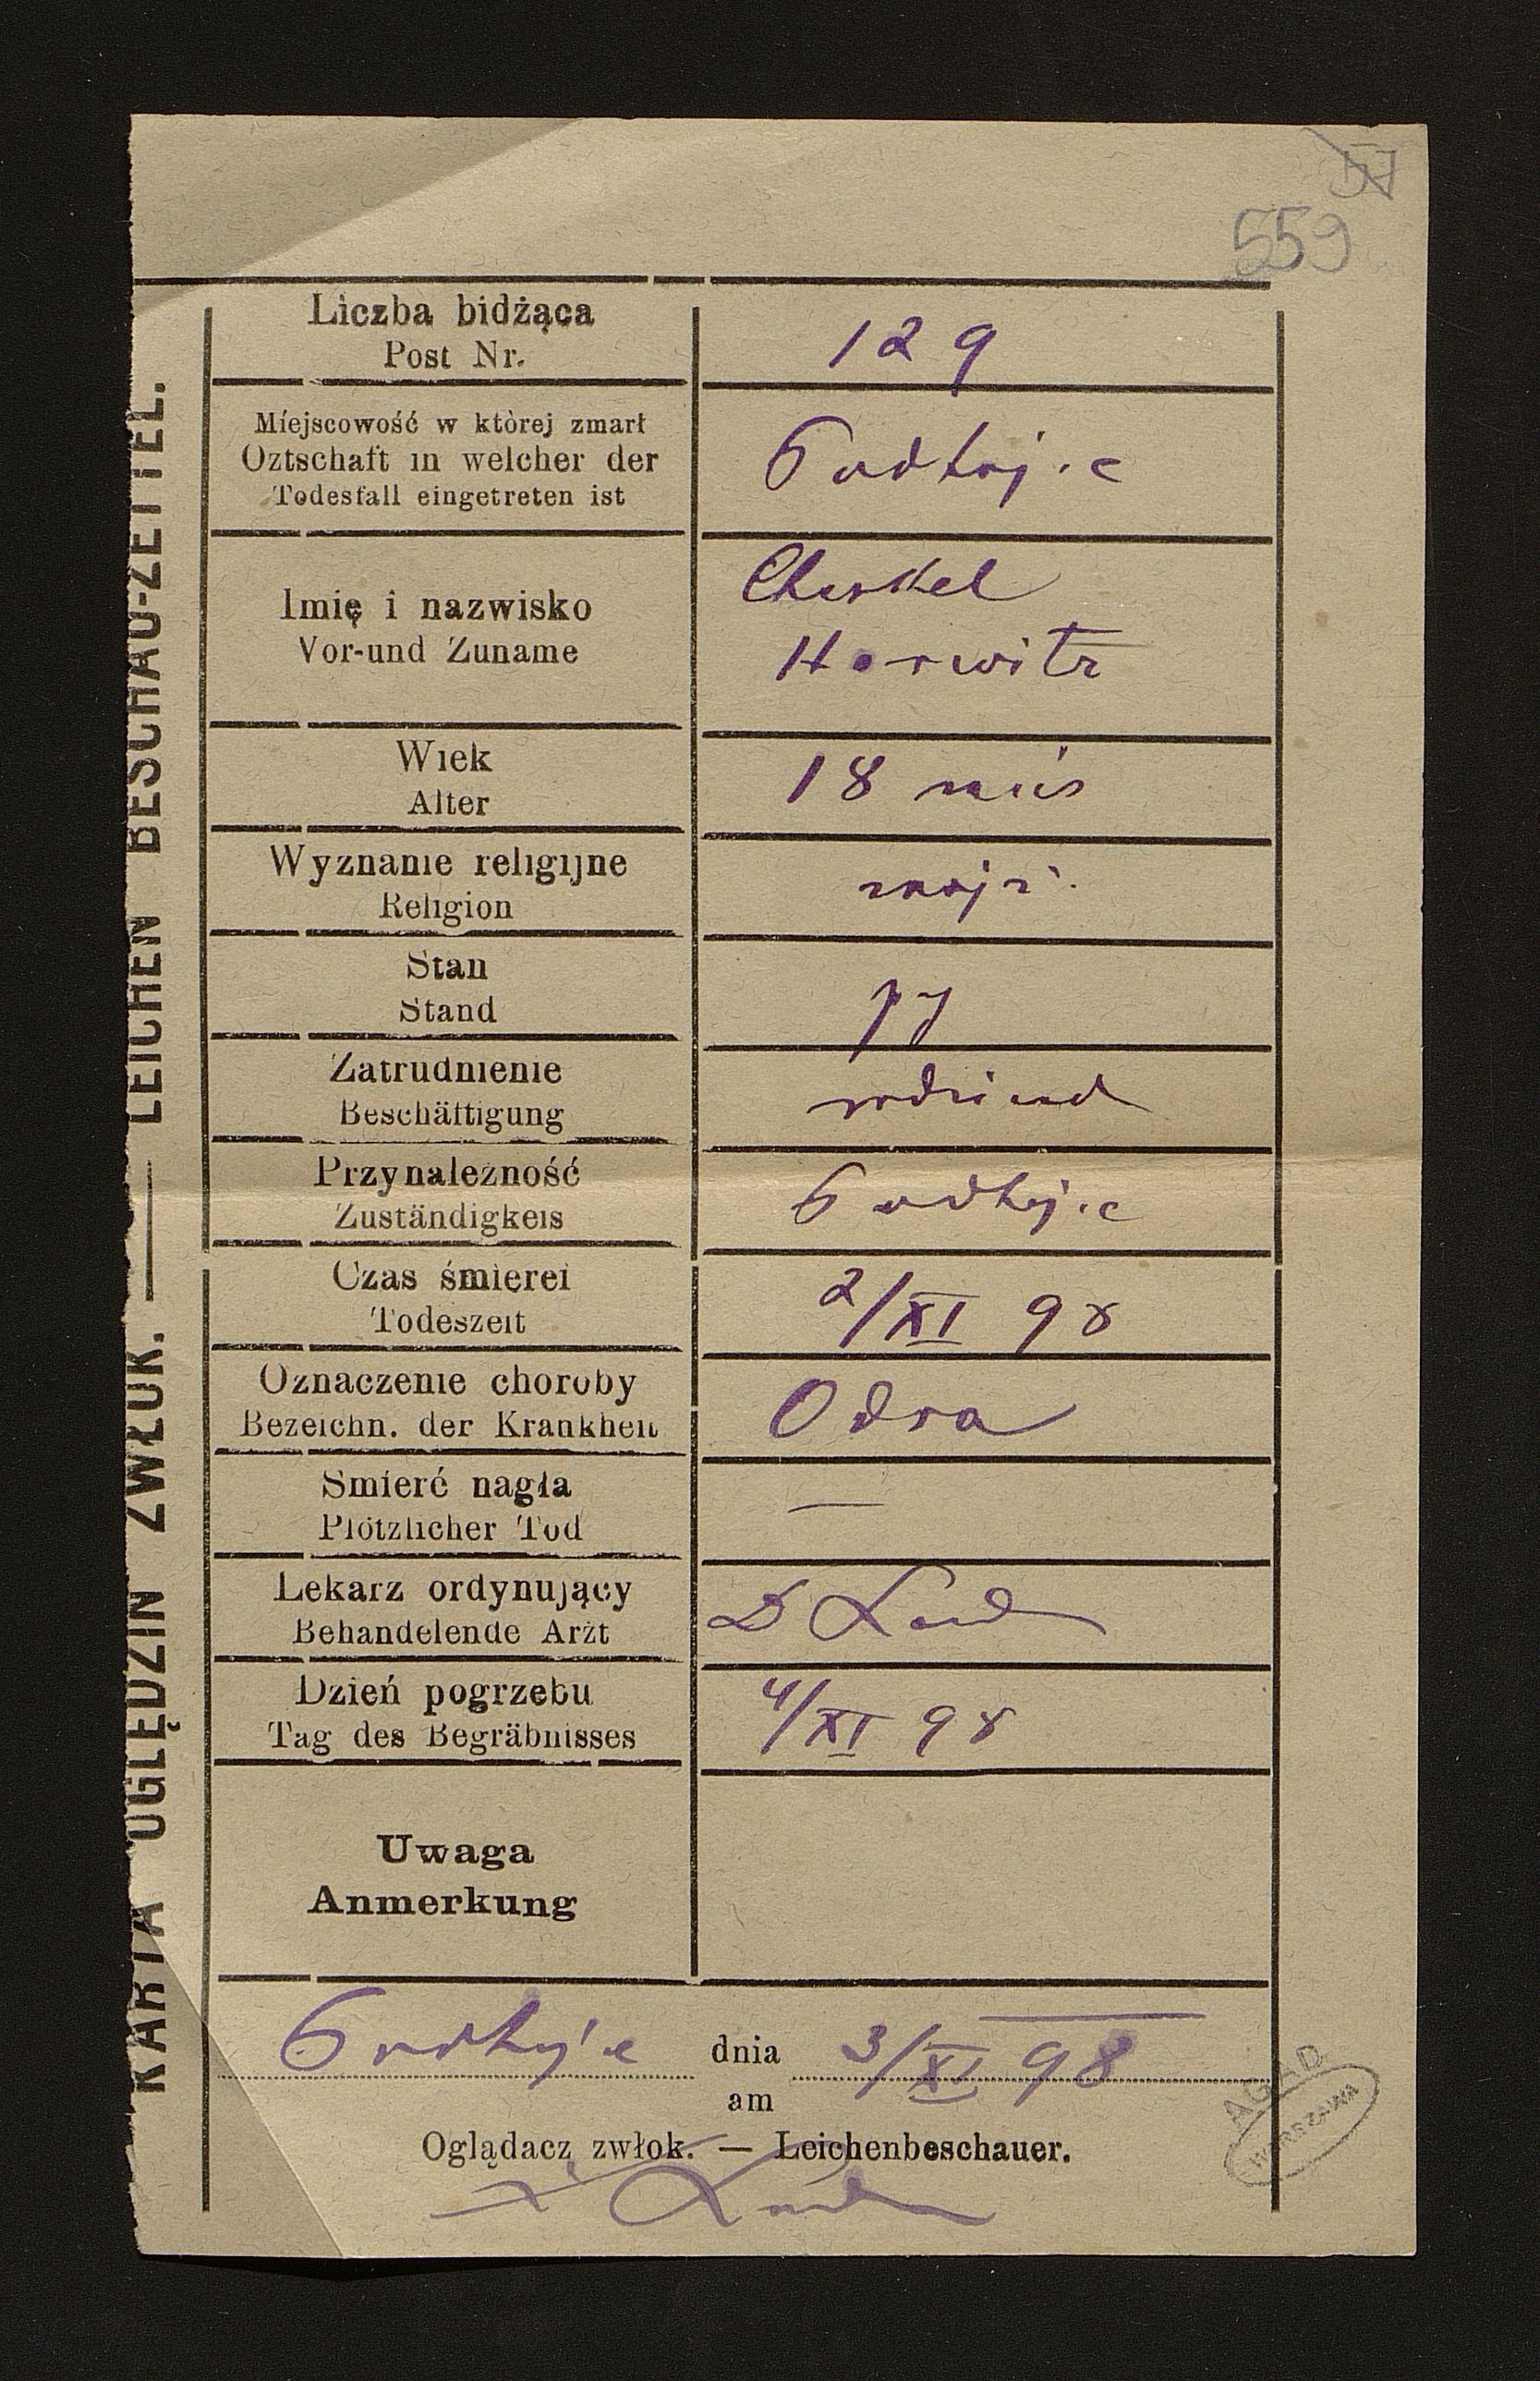 57
559
KARTA OGLĘDZIN ZWŁOK. — LEICHEN BESCHAU-ZETTEL.
Liczba bidżąca
Post Nr.
129
Miejscowość w którèj zmarł
Oztschaft in welcher der
Todesfall eingetreten ist
Podhajce
Imię i nazwisko
Vor-und Zuname
Chaskel
Horwitz
Wiek
Alter
18 mies
Wyznanie religijne
Religion
mojż.
Stan
Stand
Zatrudnienie
Beschäftigung
Przynależność
Zuständigkeis
Podhajce
Czas śmierei
Todeszeit
2/XI 98
Oznaczenie choroby
Bezeichn. der Krankheit
Odra
Smierć nagła
Plötzlicher Tod
—
Lekarz ordynujący
Behandelende Arżt
D
Dzień pogrzebu
Tag des Begräbnisses
4/XI 98
Uwaga
Anmerkung
Podhajce dnia 3/XI 98
am
Oglądacz zwłok. — Leichenbeschauer.
AGAD
WARSZAWA